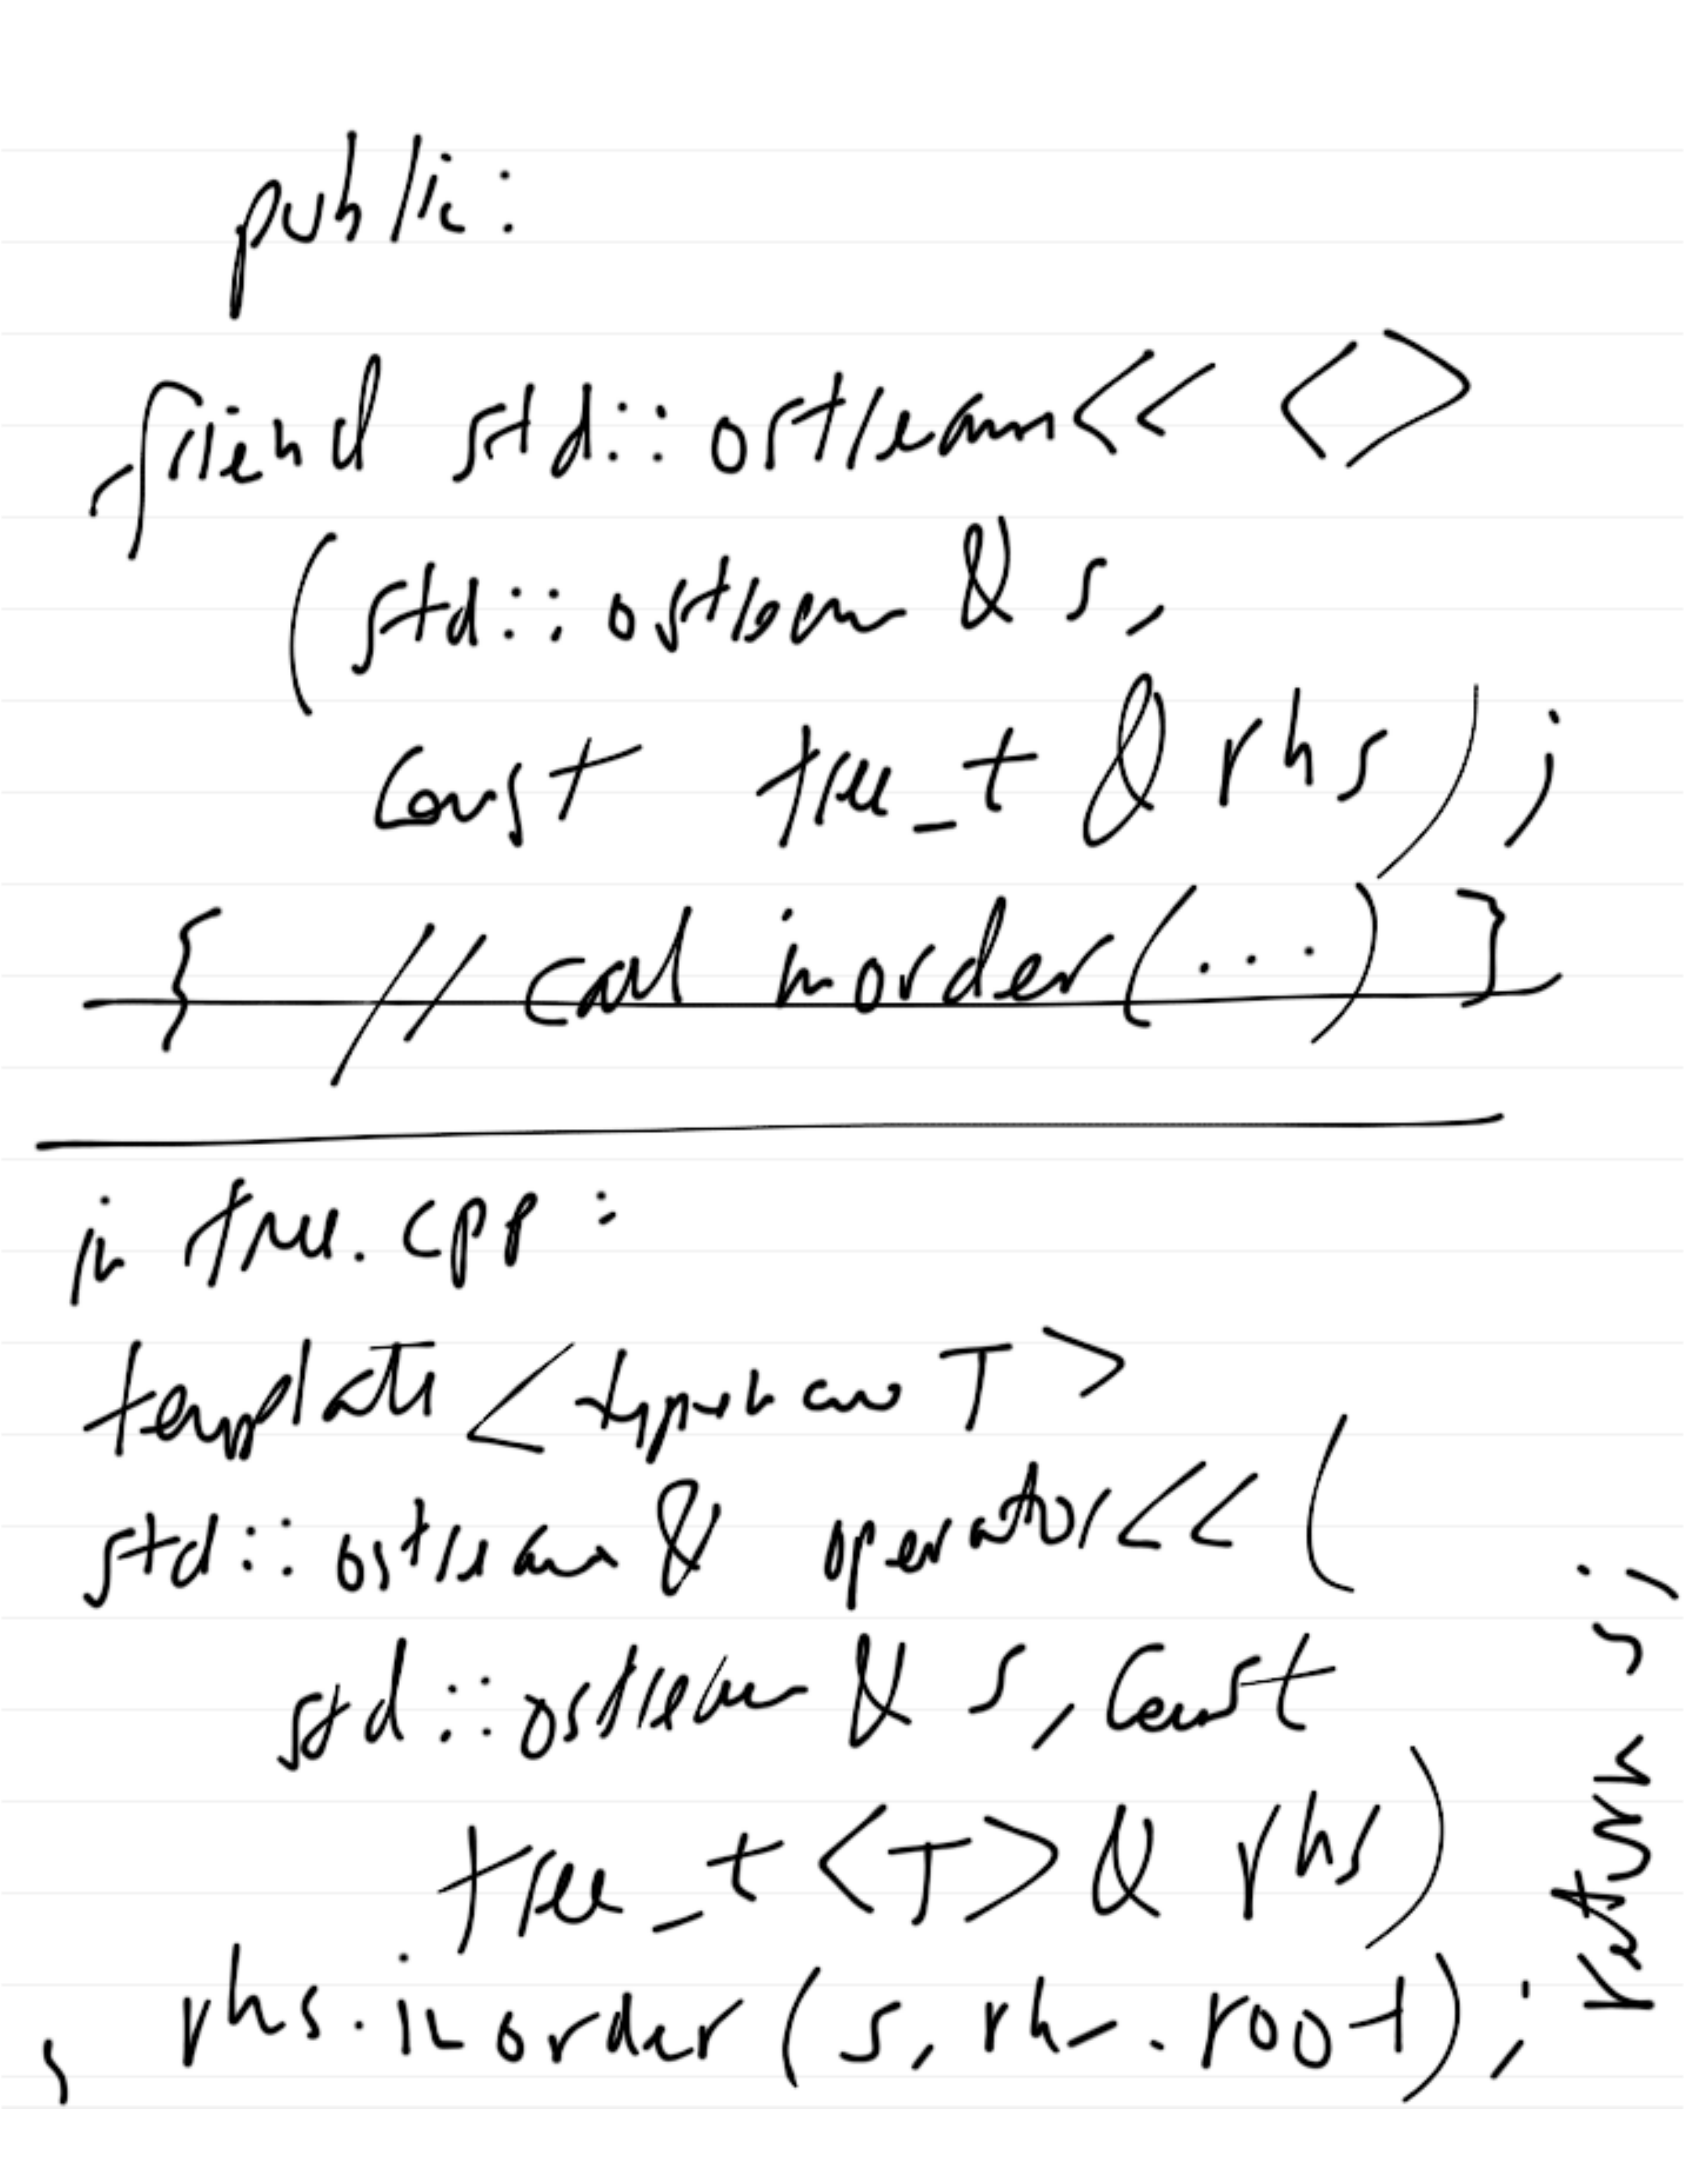 public:
friend std::ostream<< <>
(std::ostream & s,
const tree_t & rhs);
{ // call inorder(...) }
in tree.cpp:
template <typename T>
std::ostream & operator<< (
std::ostream & s, const
tree_t <T> & rhs)
{ rhs.inorder(s, rhs.root);
return s;